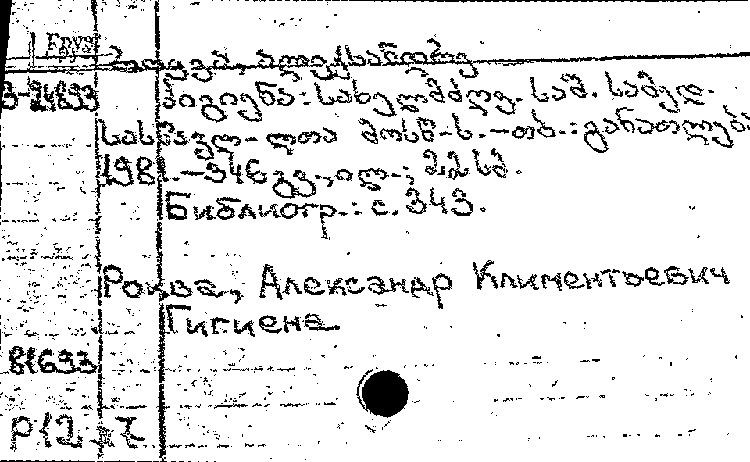 Груз
როყვა, ალექსანდრე
3-24893 ჰიგიენა: სახელმძღვ. საშ. სამედ.
სასწავლ-ლთა მოსწ-ს.-თბ.: განათლება
1981.-346 გვ., ილ.; 22 სმ.
Библиогр.: с. 343.
Роква, Александр Климентьевич
Гигиена
81633